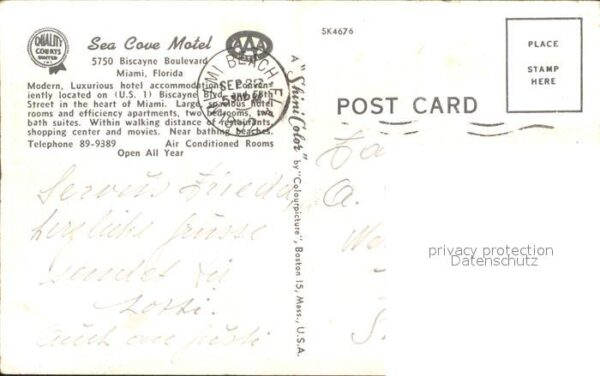 QUALITY
COURTS
UNITED
INC
Sea Cove Motel
AAA
5750 Biscayne Boulevard
Miami, Florida
Modern, Luxurious hotel accommodations. Conven-
iently located on (U.S. 1) Biscayne Blvd. and
Street in the heart of Miami. Large, spacious hotel
rooms and efficiency apartments, two bedrooms, two
bath suites. Within walking distance of restaurants,
shopping center and movies. Near bathing beaches.
Telephone 89-9389 Air Conditioned Rooms
Open All Year
MIAMI BEACH
SEP
Servus Frieda,
herzliche Grüsse
sendet dir
Lotti.
Auch an
A "ShiniColor" by "Colourpicture", Boston 15, Mass., U.S.A.
SK4676
PLACE
STAMP
HERE
POST CARD
A.
privacy protection
Datenschutz